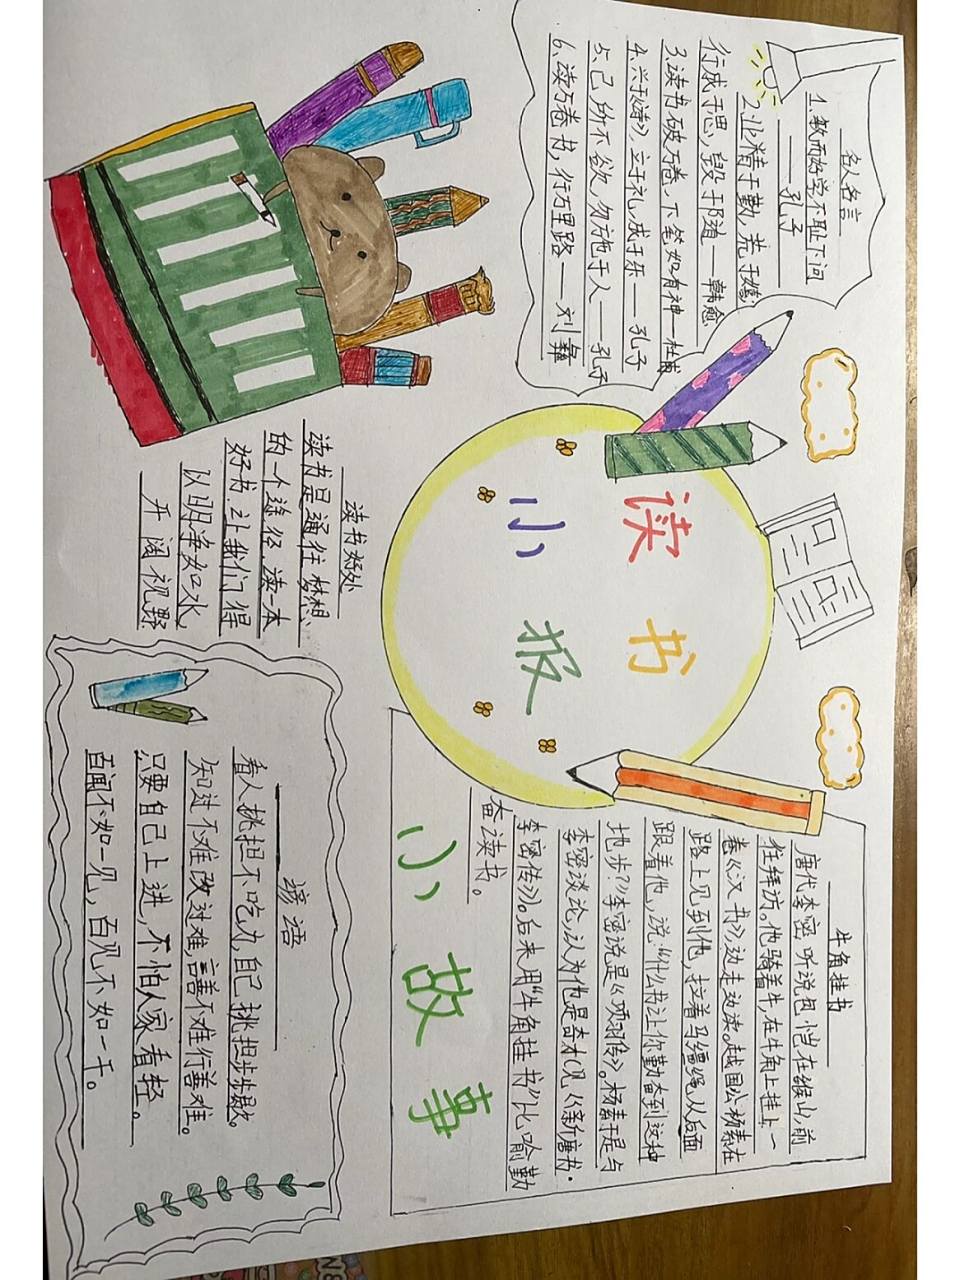 名人名言
1.敏而好学不耻下问
——孔子
2.业精于勤,荒于嬉
行成于思,毁于随——韩愈
3.读书破万卷,下笔如有神—杜甫
4.兴于《诗》,立于礼,成于乐——孔子
5.己所不欲,勿施于人——孔子
6.读万卷书,行万里路——刘彝
读书
小报
读书好处
读书是通往梦想
的一个途径,读一本
好书,让我们得
以明净如水,
开阔视野
牛角挂书
唐代李密听说包恺在缑山,前
往拜访。他骑着牛,在牛角上挂上一
卷《汉书》,边走边读。越国公杨素在
路上见到他,拉着马缰绳,从后面
跟着他,说:“什么书让你勤奋到这种
地步?”李密说是《项羽传》。杨素于是与
李密谈论,认为他是奇才(见《新唐书·
李密传》)。后来用“牛角挂书”比喻勤
奋读书。
小故事
谚语
看人挑担不吃力,自己挑担步步歇。
知过不难改过难,言善不难行善难。
只要自己上进,不怕人家看轻。
百闻不如一见,百见不如一干。